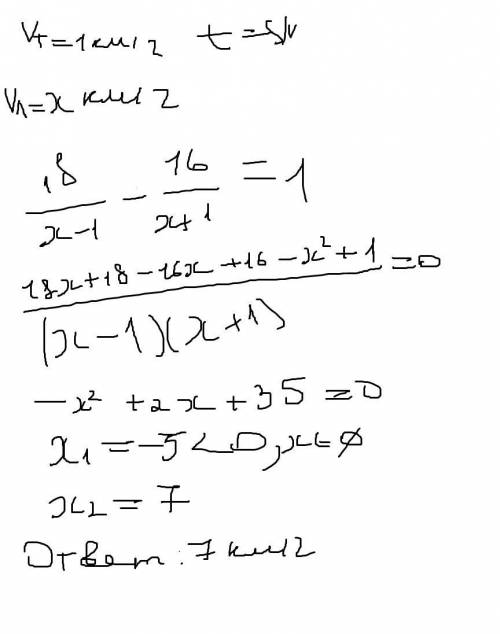 Vт = 1 км/ч t = S/V
Vл = x км/ч
18/(x-1) - 16/(x+1) = 1
(18x+18-16x+16-x²+1)/((x-1)(x+1)) = 0
-x² + 2x + 35 = 0
x1 = -5 < 0, x = ∅
x2 = 7
Ответ: 7 км/ч